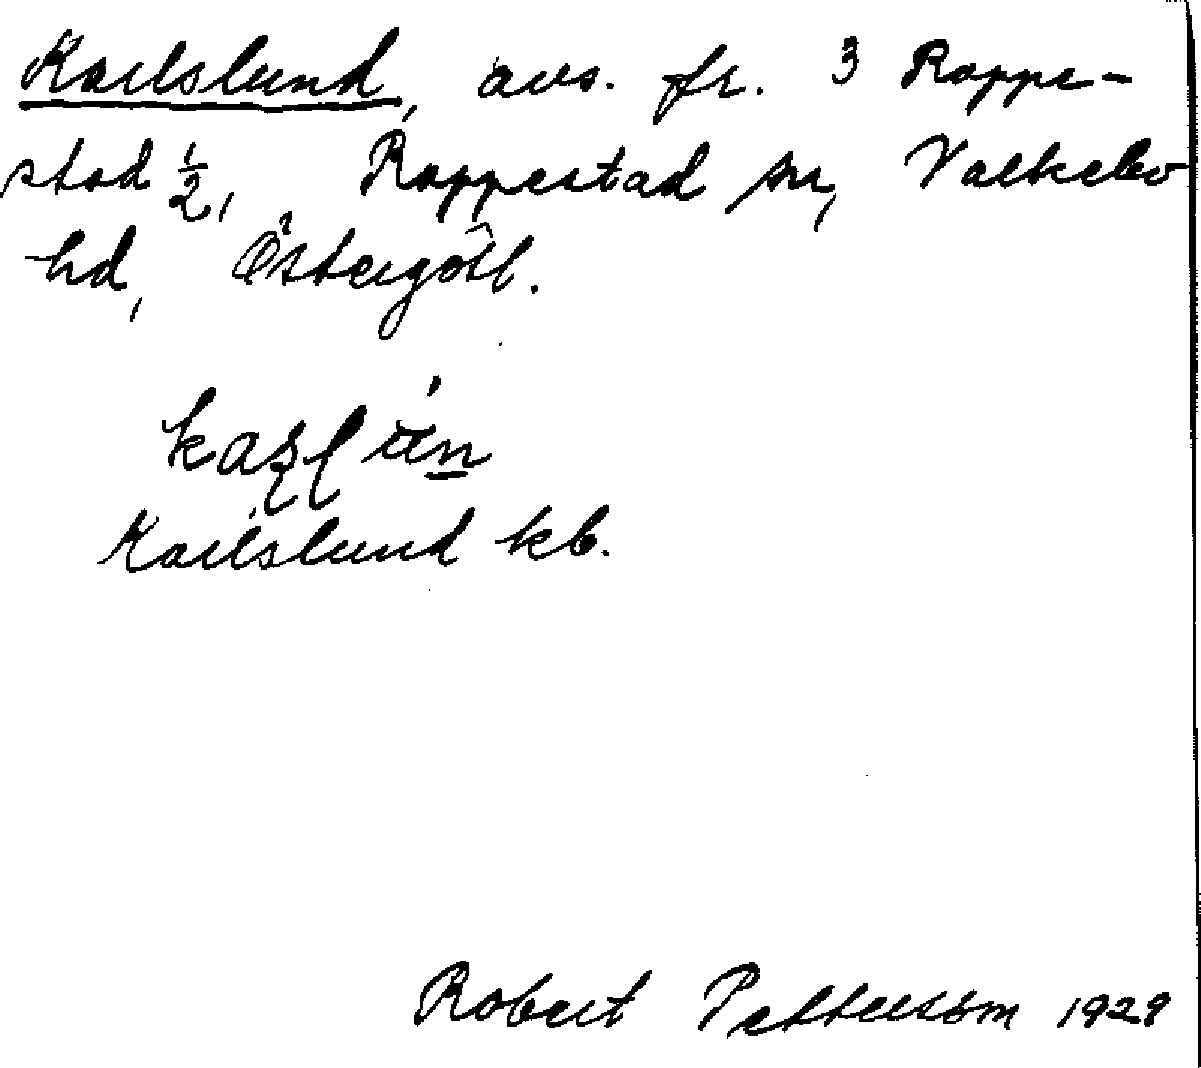 Karlslund, avs. fr. 3 Rappe-
stad 1/2, Rappestad sn, Valkebo
hd, Östergötl.
Karlslund kb.
Robert Pettersson 1929